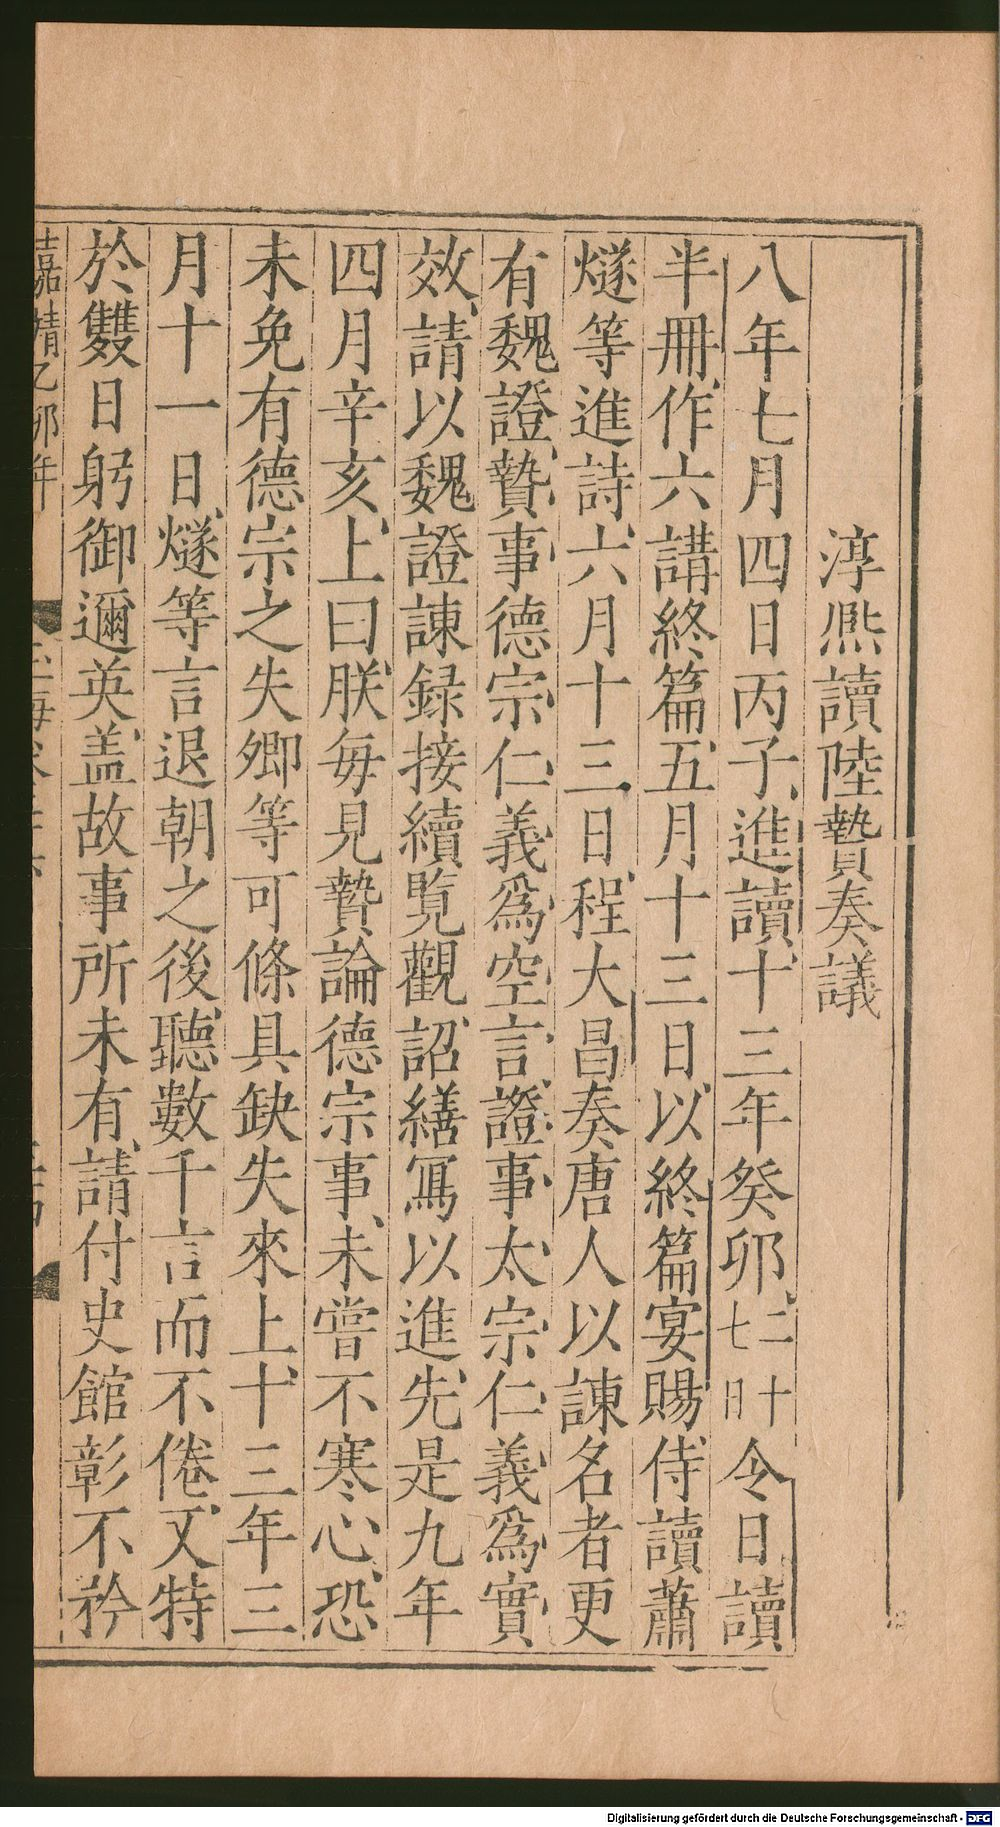 淳熈讀陸贄奏議
八年七月四日丙子進讀十三年癸卯二十七日令日讀
半冊作六講終篇五月十三日以終篇宴賜侍讀蕭
燧等進詩六月十三日程大昌奏唐人以諫名者更
有魏證贄事德宗仁義爲空言證事太宗仁義爲實
效請以魏證諫録接續覧觀詔繕冩以進先是九年
四月辛亥上曰朕每見贄論德宗事未嘗不寒心恐
未免有德宗之失卿等可條具缺失來上十三年三
月十一日燧等言退朝之後聽數千言而不倦又特
於雙日躬御邇英盖故事所未有請付史館彰不矜
嘉靖乙卯年
Digitalisierung gefördert durch die Deutsche Forschungsgemeinschaft - DFG